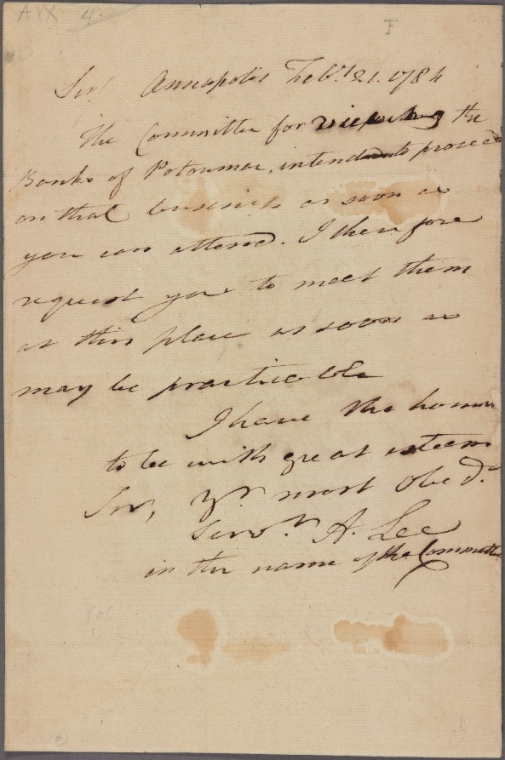 AXX 4
I
Sir, Annapolis Feb. 21. 1784
The Committee for viewing the
Banks of Potowmac, intend to proceed
on that business as soon as
you can attend. I therefore
request you to meet them
at this place as soon as
may be practicable
I have the honor
to be with great esteem
Sir, Yr. most Obed.
Servt. A. Lee
in the name of the Committee